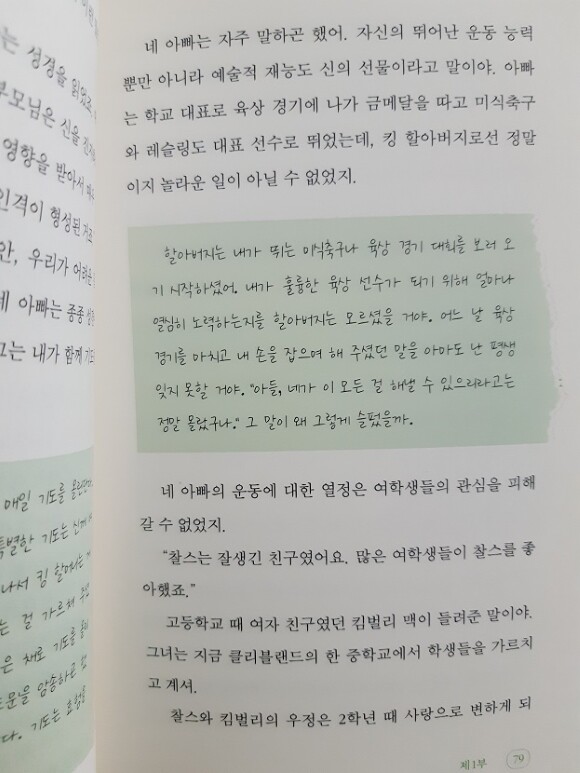 는 성경을 읽었고
부모님은 신을
영향을 받아서
인격이 형성된
안, 우리가 어려운
네 아빠는 종종
그는 내가 함께
매일 기도를
특별한 기도는
나서 킹 할머니는
는 걸 가르쳐
은 채로 기도를
문을 암송하곤
다. 기도는
네 아빠는 자주 말하곤 했어. 자신의 뛰어난 운동 능력
뿐만 아니라 예술적 재능도 신의 선물이라고 말이야. 아빠
는 학교 대표로 육상 경기에 나가 금메달을 따고 미식축구
와 레슬링도 대표 선수로 뛰었는데, 킹 할아버지로선 정말
이지 놀라운 일이 아닐 수 없었지.
할아버지는 내가 뛰는 미식축구나 육상 경기 대회를 보러 오
기 시작하셨어. 내가 훌륭한 육상 선수가 되기 위해 얼마나
열심히 노력하는지를 할아버지는 모르셨을 거야. 어느 날 육상
경기를 마치고 내 손을 잡으며 해 주셨던 말을 아마도 난 평생
잊지 못할 거야. "아들, 네가 이 모든 걸 해낼 수 있으리라고는
정말 몰랐구나." 그 말이 왜 그렇게 슬펐을까.
네 아빠의 운동에 대한 열정은 여학생들의 관심을 피해
갈 수 없었지.
“찰스는 잘생긴 친구였어요. 많은 여학생들이 찰스를 좋
아했죠.”
고등학교 때 여자 친구였던 킴벌리 맥이 들려준 말이야.
그녀는 지금 클리블랜드의 한 중학교에서 학생들을 가르치
고 계셔.
찰스와 킴벌리의 우정은 2학년 때 사랑으로 변하게 되
제1부 79